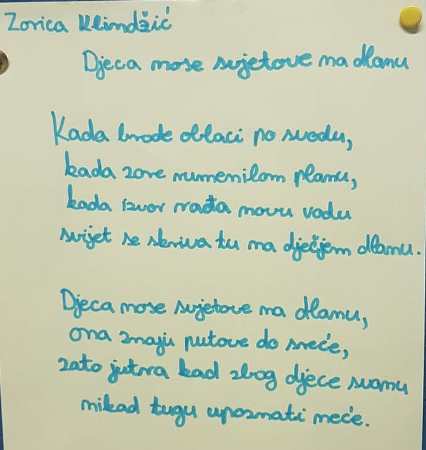 Zorica Klindžić
Djeca nose svjetove na dlanu
Kada brode oblaci po svodu,
kada zore rumenilom planu,
kada izvor rađa novu vodu
svijet se skriva tu na dječjem dlanu.
Djeca nose svjetove na dlanu,
ona znaju putove do sreće,
zato jutra kad zbog djece svanu
nikad tugu upoznati neće.